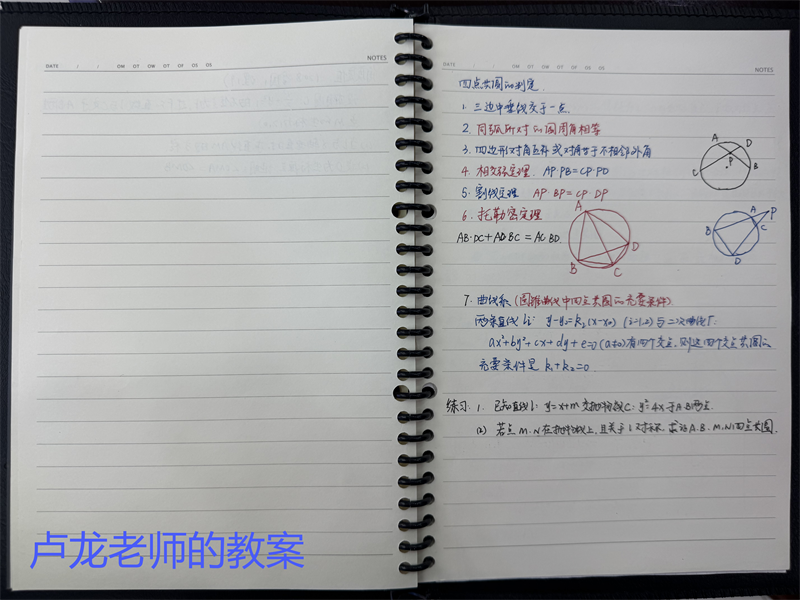 DATE / / OM OT OW OT OF OS OS NOTES
卢龙老师的教案
DATE / / OM OT OW OT OF OS OS NOTES
四点共圆的判定.
1. 三边中垂线交于一点.
2. 同弧所对的圆周角相等
3. 四边形对角互补 或对角等于不相邻外角
4. 相交弦定理. AP·PB=CP·PD
A D P C B
5. 割线定理 AP·BP=CP·DP
6. 托勒密定理
AB·DC+AD·BC=AC·BD.
A B C D
A P B C D
7. 曲线系(圆锥曲线中四点共圆的充要条件)
两条直线li: y-y0=ki(x-x0) (i=1,2)与二次曲线Γ:
ax²+by²+cx+dy+e=0(a≠b)有四个交点,则这四个交点共圆的
充要条件是 k1+k2=0.
练习: 1. 已知直线l: y=x+m 交抛物线C: y²=4x于A.B两点.
(2) 若点M.N在抛物线上,且关于l对称.求证A.B.M.N四点共圆.